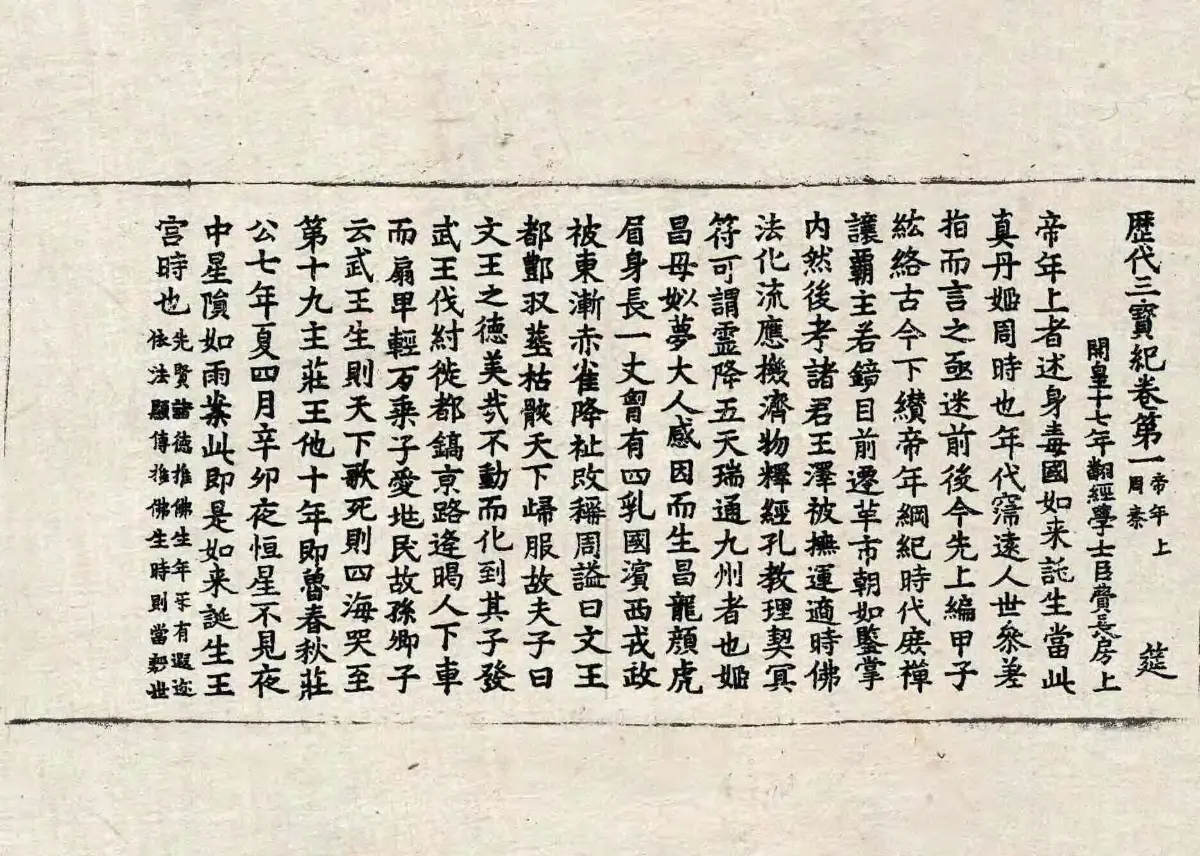 歷代三寶紀卷第一 帝年上 周秦 筵
開皇十七年翻經學士臣費長房上
帝年上者述身毒國如来誕生當此
真丹姬周時也年代霈遠人世叅差
指而言之亟迷前後今先上編甲子
紘絡古今下纉帝年綱紀時代庶禪
讓霸主若鏡目前遷革市朝如鑒掌
内然後考諸君王澤被撫運適時佛
法化流應機濟物釋經孔教理契冥
符可謂靈降五天瑞通九州者也姬
昌母姒夢大人感因而生昌龍顔虎
眉身長一丈胷有四乳國濱西戎政
被東漸赤雀降祉改稱周謚曰文王
都酆収葬枯骸天下歸服故夫子曰
文王之德美㢤不動而化到其子發
武王伐紂徙都鎬京路逢暍人下車
而扇卑輕万乗子愛地民故孫卿子
云武王生則天下歌死則四海哭至
第十九主莊王他十年即魯春秋莊
公七年夏四月辛卯夜恒星不見夜
中星隕如雨案此即是如来誕生王
宫時也 先賢諸德推佛生年互有遐迩
依法顯傳推佛生時則當勢世